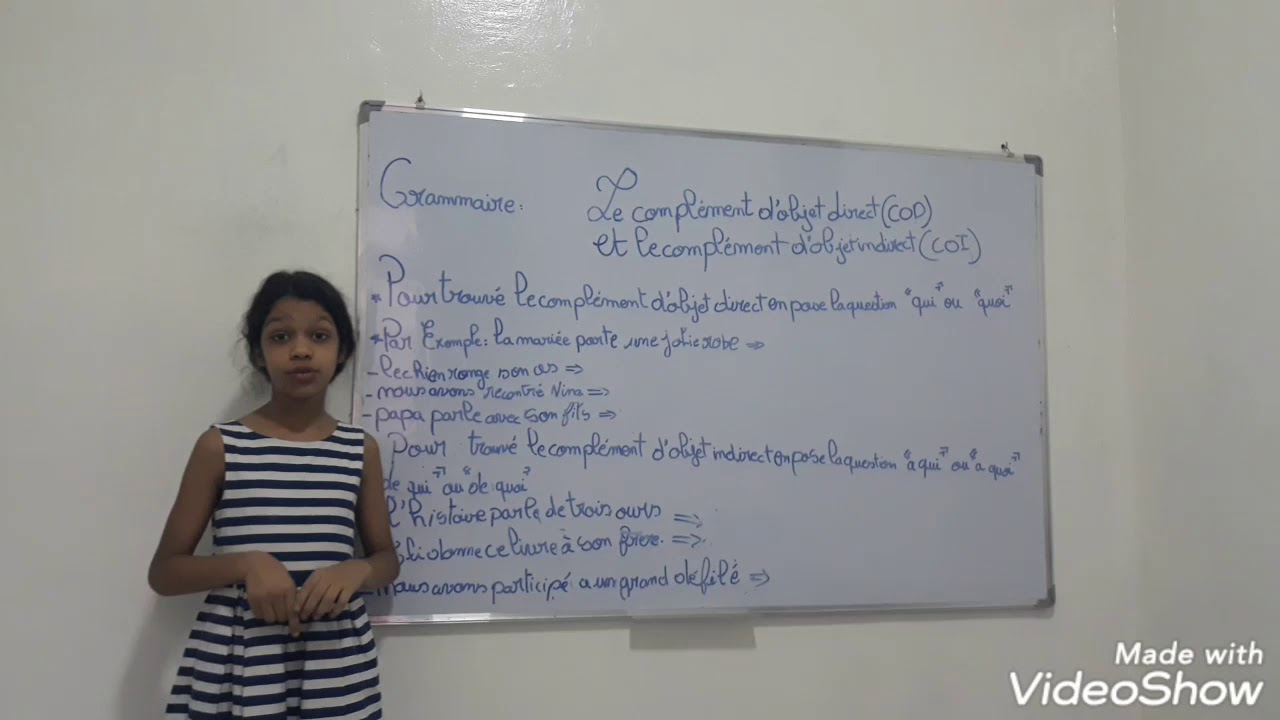 Grammaire: Le complément d'objet direct (COD)
et le complément d'objet indirect (COI)
* Pour trouvé le complément d'objet direct on pose la question "qui" ou "quoi"
* Par Exemple: la mariée porte une jolie robe ⇒
- le chien ronge son os ⇒
- nous avons recontré Nina ⇒
- papa parle avec son fils ⇒
Pour trouvé le complément d'objet indirect on pose la question "à qui" ou "a quoi"
de qui" ou "de quoi"
l'histoire parle de trois ours ⇒
donne ce livre à son frère. ⇒
- nous avons participé a un grand défilé ⇒
Made with
VideoShow